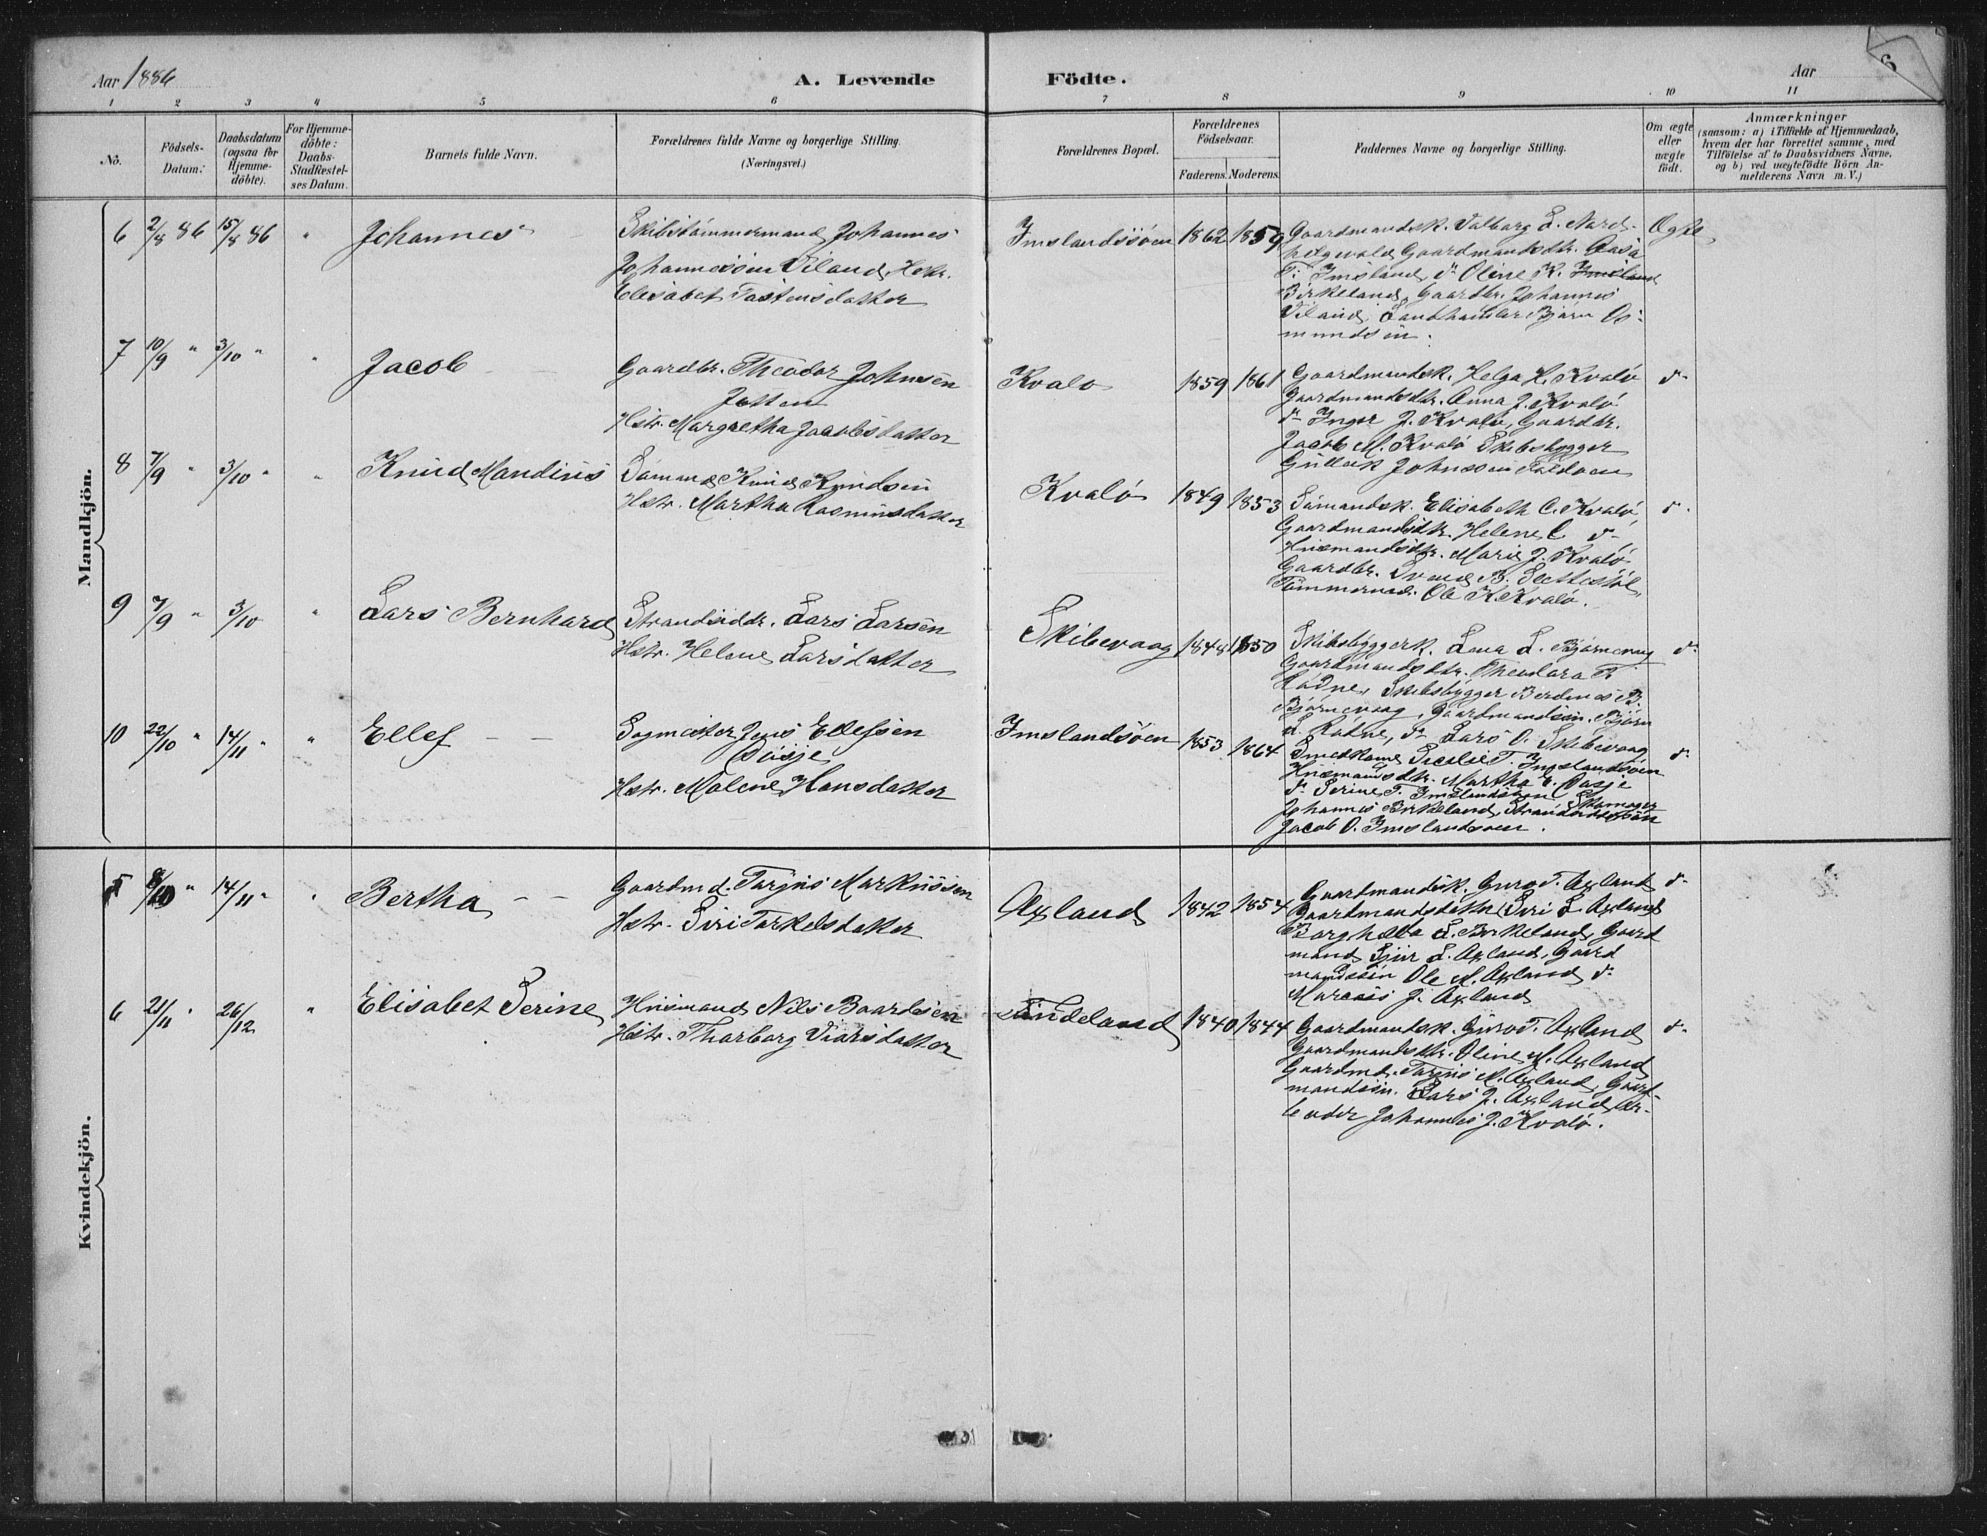 Aar 1886 A. Levende Födte. Aar 6
1 2 3 4 5 6 7 8 9 10 11
No.
Födsels-
Datum.
Daabsdatum
(ogsaa for
Hjemme-
döbte).
For Hjemme-
döbte:
Daabs-
Stadfestel-
ses Datum.
Barnets fulde Navn.
Forældrenes fulde Navne og borgerlige Stilling.
(Næringsvei.)
Forældrenes Bopæl.
Forældrenes
Födselsaar.
Faderens. Moderens.
Faddernes Navne og borgerlige Stilling.
Om ægte
eller
uægte
födt.
Anmærkninger
(saasom: a) i Tilfælde af Hjemmedaab,
hvem der har forrettet samme, med
Tilföielse af to Daabsvidners Navne,
og b) ved uægtefödte Börn An-
melderens Navn m. V.)
Mandkjön.
6 2/8 86 15/8 86 " Johannes
Skibstömmermand Johannes
Johannessen Viland, Hstr.
Elisabet Tostensdatter
Imslandssöen 1862 1859
Gaardmandsk. Valborg L. Nord-
Gaardmandsdtr. Aasa
T. Imsland, do Oline K. Imsland
Birkeland, Gaardbr. Johannes
Viland, Landhandler Björn Os-
mundsen.
Ægte
7 10/9 " 3/10 " " Jacob
Gaardbr. Theodor Johnsen
Hstr. Margretha Jacobsdatter
Kvalö 1859 1861
Gaardmandsk. Helga H. Kvalö
Gaardmandsdtr. Anna J. Kvalö
do Inger J. Kvalö, Gaardbr.
Jacob M. Kvalö Skibsbygger
Gullek Johnssen
do
8 7/9 " 3/10 " " Knud Mandius
Sömand Knud Knudsen
Hstr. Martha Rasmusdatter
Kvalö 1849 1853
Sömandsk. Elisabeth C. Kvalö,
Gaardmandsdtr. Helene C do
Husmandsdtr. Marie J. Kvalö
Gaardbr. Svend B.
Tömmermd. Ole K. Kvalö.
do
9 7/9 " 3/10 " Lars Bernhard
Strandsiddr. Lars Larsen
Hstr. Helene Larsdatter
Skibevaag 1848 1850
Skibsbyggerk. Lena L. Björnevaag
Gaardmandsdtr. Theodora T.
Rödne, Skibsbygger Berdines B.
Björnevaag, Gaardmandssön. Björn
L. Rödne, do Lars O. Skibevaag
do
10 22/10 " 14/11 " " Ellef
Sagmester Jens Ellefsen
Hstr. Malene Hansdatter
Imslandsöen 1853 1864
Smedkone Sicelie T. Imslandsöen
Husmandsdtr. Martha E.
do Serine T. Imslandsöen Skomager
Johannes Birkeland,
Jacob O. Imslandsöen.
do
Kvindekjön.
5 8/10 " 14/11 " " Bertha
Gaardmd. Tarjus Markussen
Hstr. Siri Torkelsdatter
Axland 1842 1854
Gaardmandsk. Guro T. Axland
Gaardmandsdatter Siri L Axland
Borghilda L. Birkeland, Gaard
mand L. Axland, Gaard
mandssön Ole M. Axland do
Marcus J. Axland
do
6 21/11 " 26/12 " Elisabet Serine
Husmand Nils Baardsen
Hstr. Thorborg Viarsdatter
Lindeland 1840 1844
Gaardmandsk. Guro T. Axland
Gaardmandsdtr. Oline M. Axland
Gaardmd. Tarjus M. Axland, Gaard-
mandssön. Lars J. Axland, Ar-
beider Johannes J. Kvalö.
do